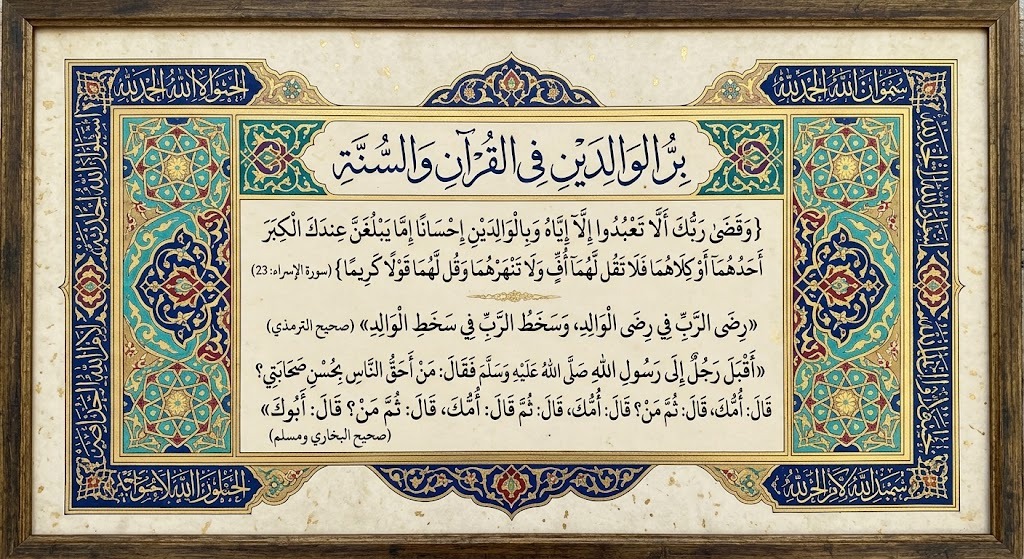 بِرُّ الوَالِدَيْنِ فِي القُرْآنِ وَالسُّنَّةِ
{وَقَضَىٰ رَبُّكَ أَلَّا تَعْبُدُوا إِلَّآ إِيَّاهُ وَبِالْوَالِدَيْنِ إِحْسَانًا إِمَّا يَبْلُغَنَّ عِندَكَ الْكِبَرَ
أَحَدُهُمَآ أَوْ كِلَاهُمَا فَلَا تَقُل لَّهُمَآ أُفٍّ وَلَا تَنْهَرْهُمَا وَقُل لَّهُمَا قَوْلًا كَرِيمًا} (سورة الإسراء: 23)
«رِضَى الرَّبِّ فِي رِضَى الْوَالِدِ، وَسَخَطُ الرَّبِّ فِي سَخَطِ الْوَالِدِ» (صحيح الترمذي)
«أَقْبَلَ رَجُلٌ إِلَى رَسُولِ اللهِ صَلَّى اللهُ عَلَيْهِ وَسَلَّمَ فَقَالَ: مَنْ أَحَقُّ النَّاسِ بِحُسْنِ صَحَابَتِي؟
قَالَ: أُمُّكَ، قَالَ: ثُمَّ مَنْ؟ قَالَ: أُمُّكَ، قَالَ: ثُمَّ قَالَ: أُمُّكَ، قَالَ: ثُمَّ مَنْ؟ قَالَ: أَبُوكَ»
(صحيح البخاري ومسلم)